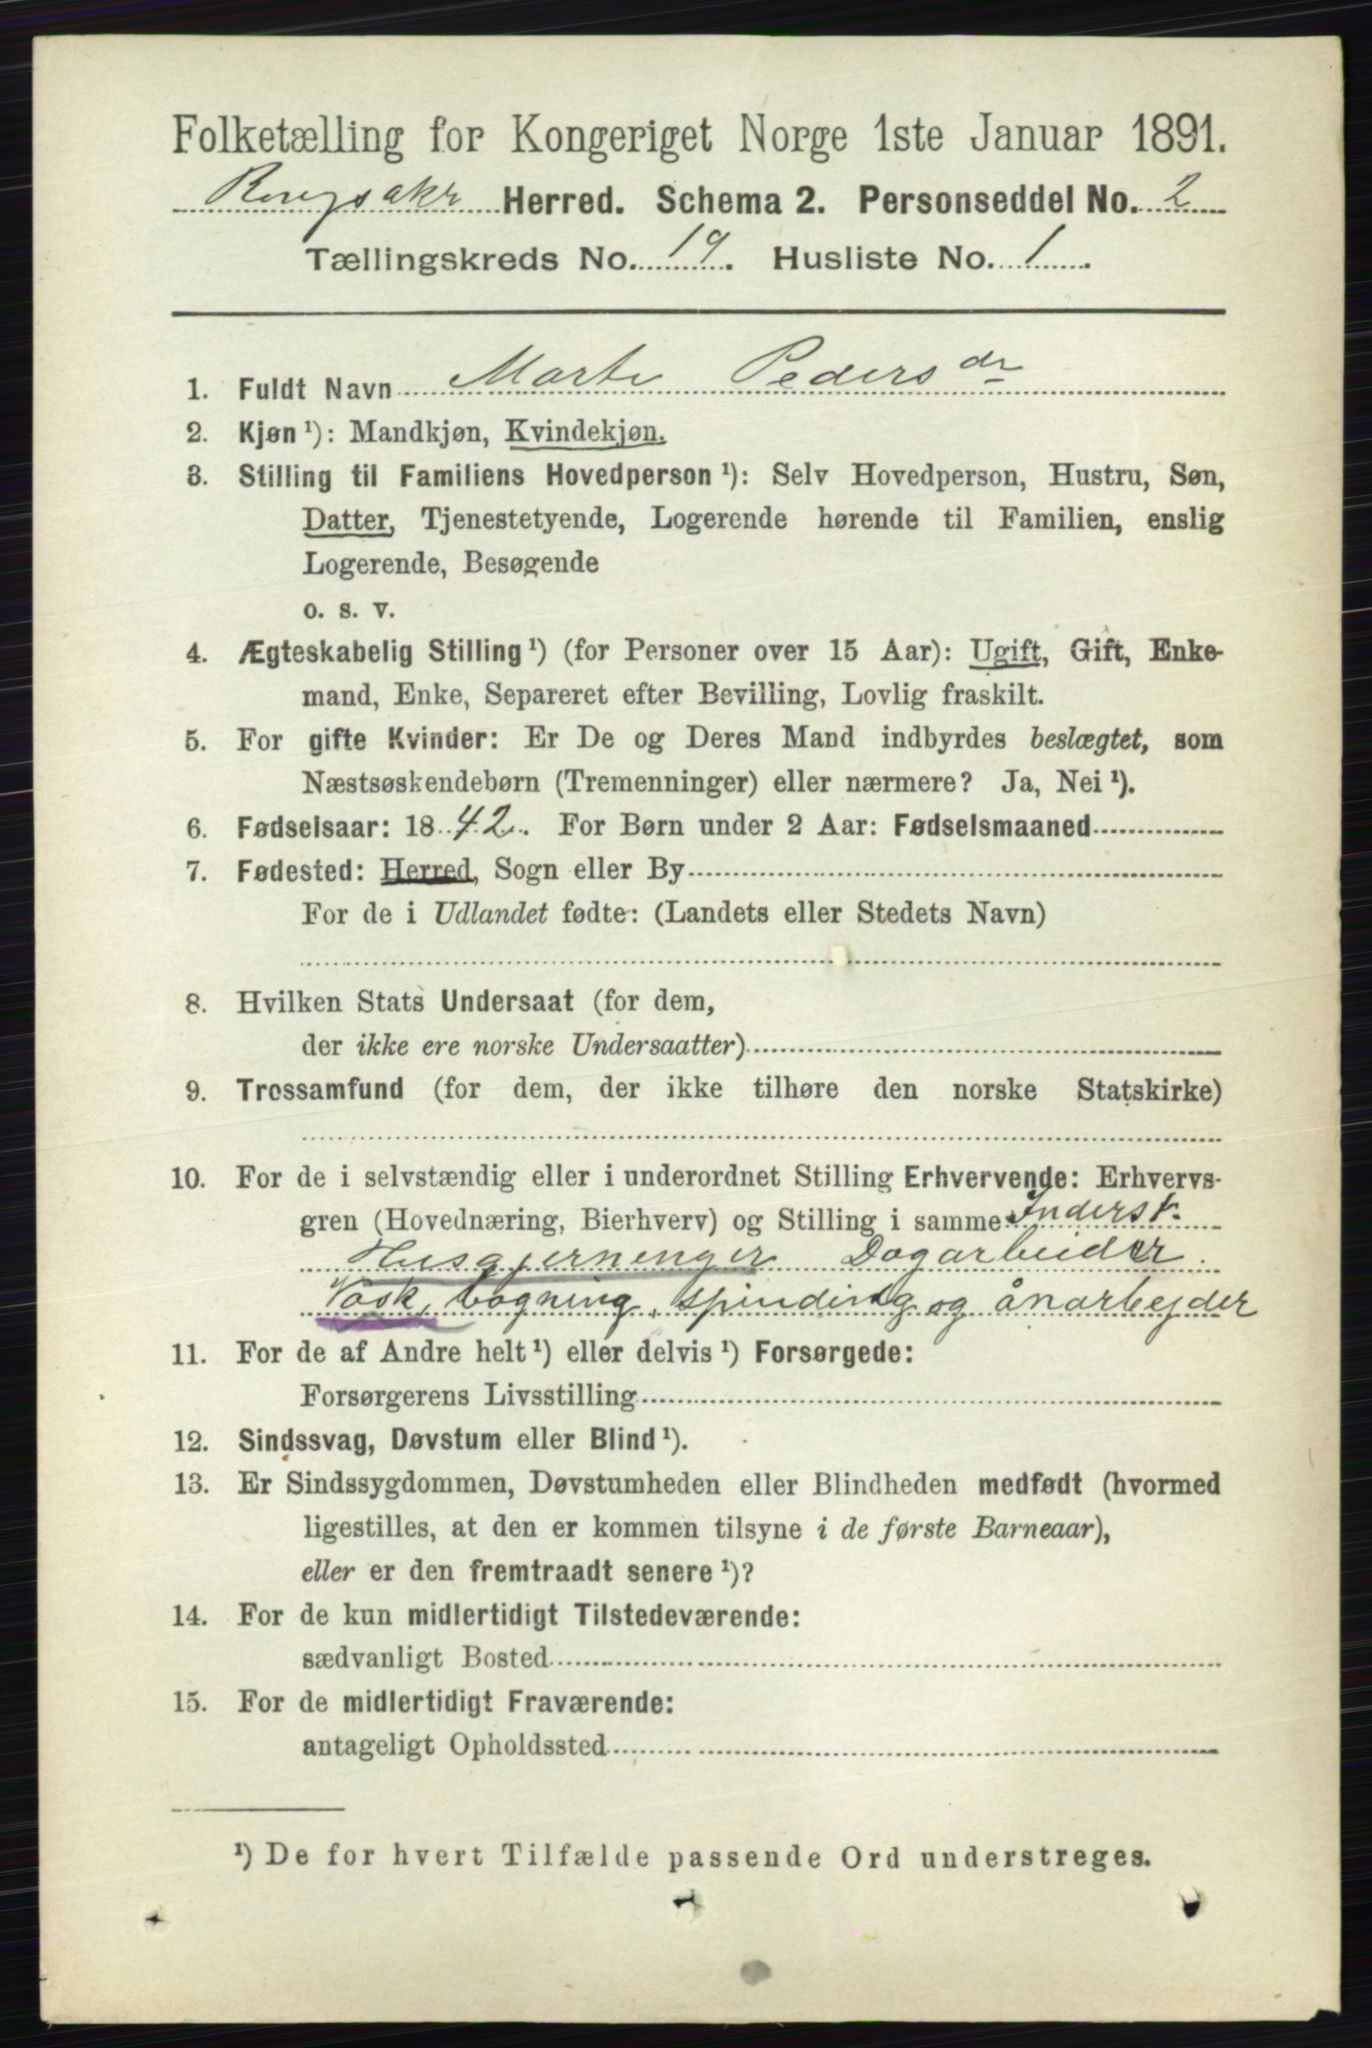 Folketælling for Kongeriget Norge 1ste Januar 1891.
Ringsaker Herred. Schema 2. Personseddel No. 2
Tællingskreds No. 19. Husliste No. 1.
1. Fuldt Navn Marte Pedersdr
2. Kjøn ¹): Mandkjøn, Kvindekjøn.
3. Stilling til Familiens Hovedperson ¹): Selv Hovedperson, Hustru, Søn,
Datter, Tjenestetyende, Logerende hørende til Familien, enslig
Logerende, Besøgende
o. s. v.
4. Ægteskabelig Stilling ¹) (for Personer over 15 Aar): Ugift, Gift, Enke-
mand, Enke, Separeret efter Bevilling, Lovlig fraskilt.
5. For gifte Kvinder: Er De og Deres Mand indbyrdes beslægtet, som
Næstsøskendebørn (Tremenninger) eller nærmere? Ja, Nei ¹).
6. Fødselsaar: 1842. For Børn under 2 Aar: Fødselsmaaned
7. Fødested: Herred, Sogn eller By
For de i Udlandet fødte: (Landets eller Stedets Navn)
8. Hvilken Stats Undersaat (for dem,
der ikke ere norske Undersaatter)
9. Trossamfund (for dem, der ikke tilhøre den norske Statskirke)
10. For de i selvstændig eller i underordnet Stilling Erhvervende: Erhvervs-
gren (Hovednæring, Bierhverv) og Stilling i samme Inderst.
Husgjerninger Dagarbeider.
Vask, bagning, spinding og ånarbejder
11. For de af Andre helt ¹) eller delvis ¹) Forsørgede:
Forsørgerens Livsstilling
12. Sindssvag, Døvstum eller Blind ¹).
13. Er Sindssygdommen, Døvstumheden eller Blindheden medfødt (hvormed
ligestilles, at den er kommen tilsyne i de første Barneaar),
eller er den fremtraadt senere ¹)?
14. For de kun midlertidigt Tilstedeværende:
sædvanligt Bosted
15. For de midlertidigt Fraværende:
antageligt Opholdssted
¹) De for hvert Tilfælde passende Ord understreges.